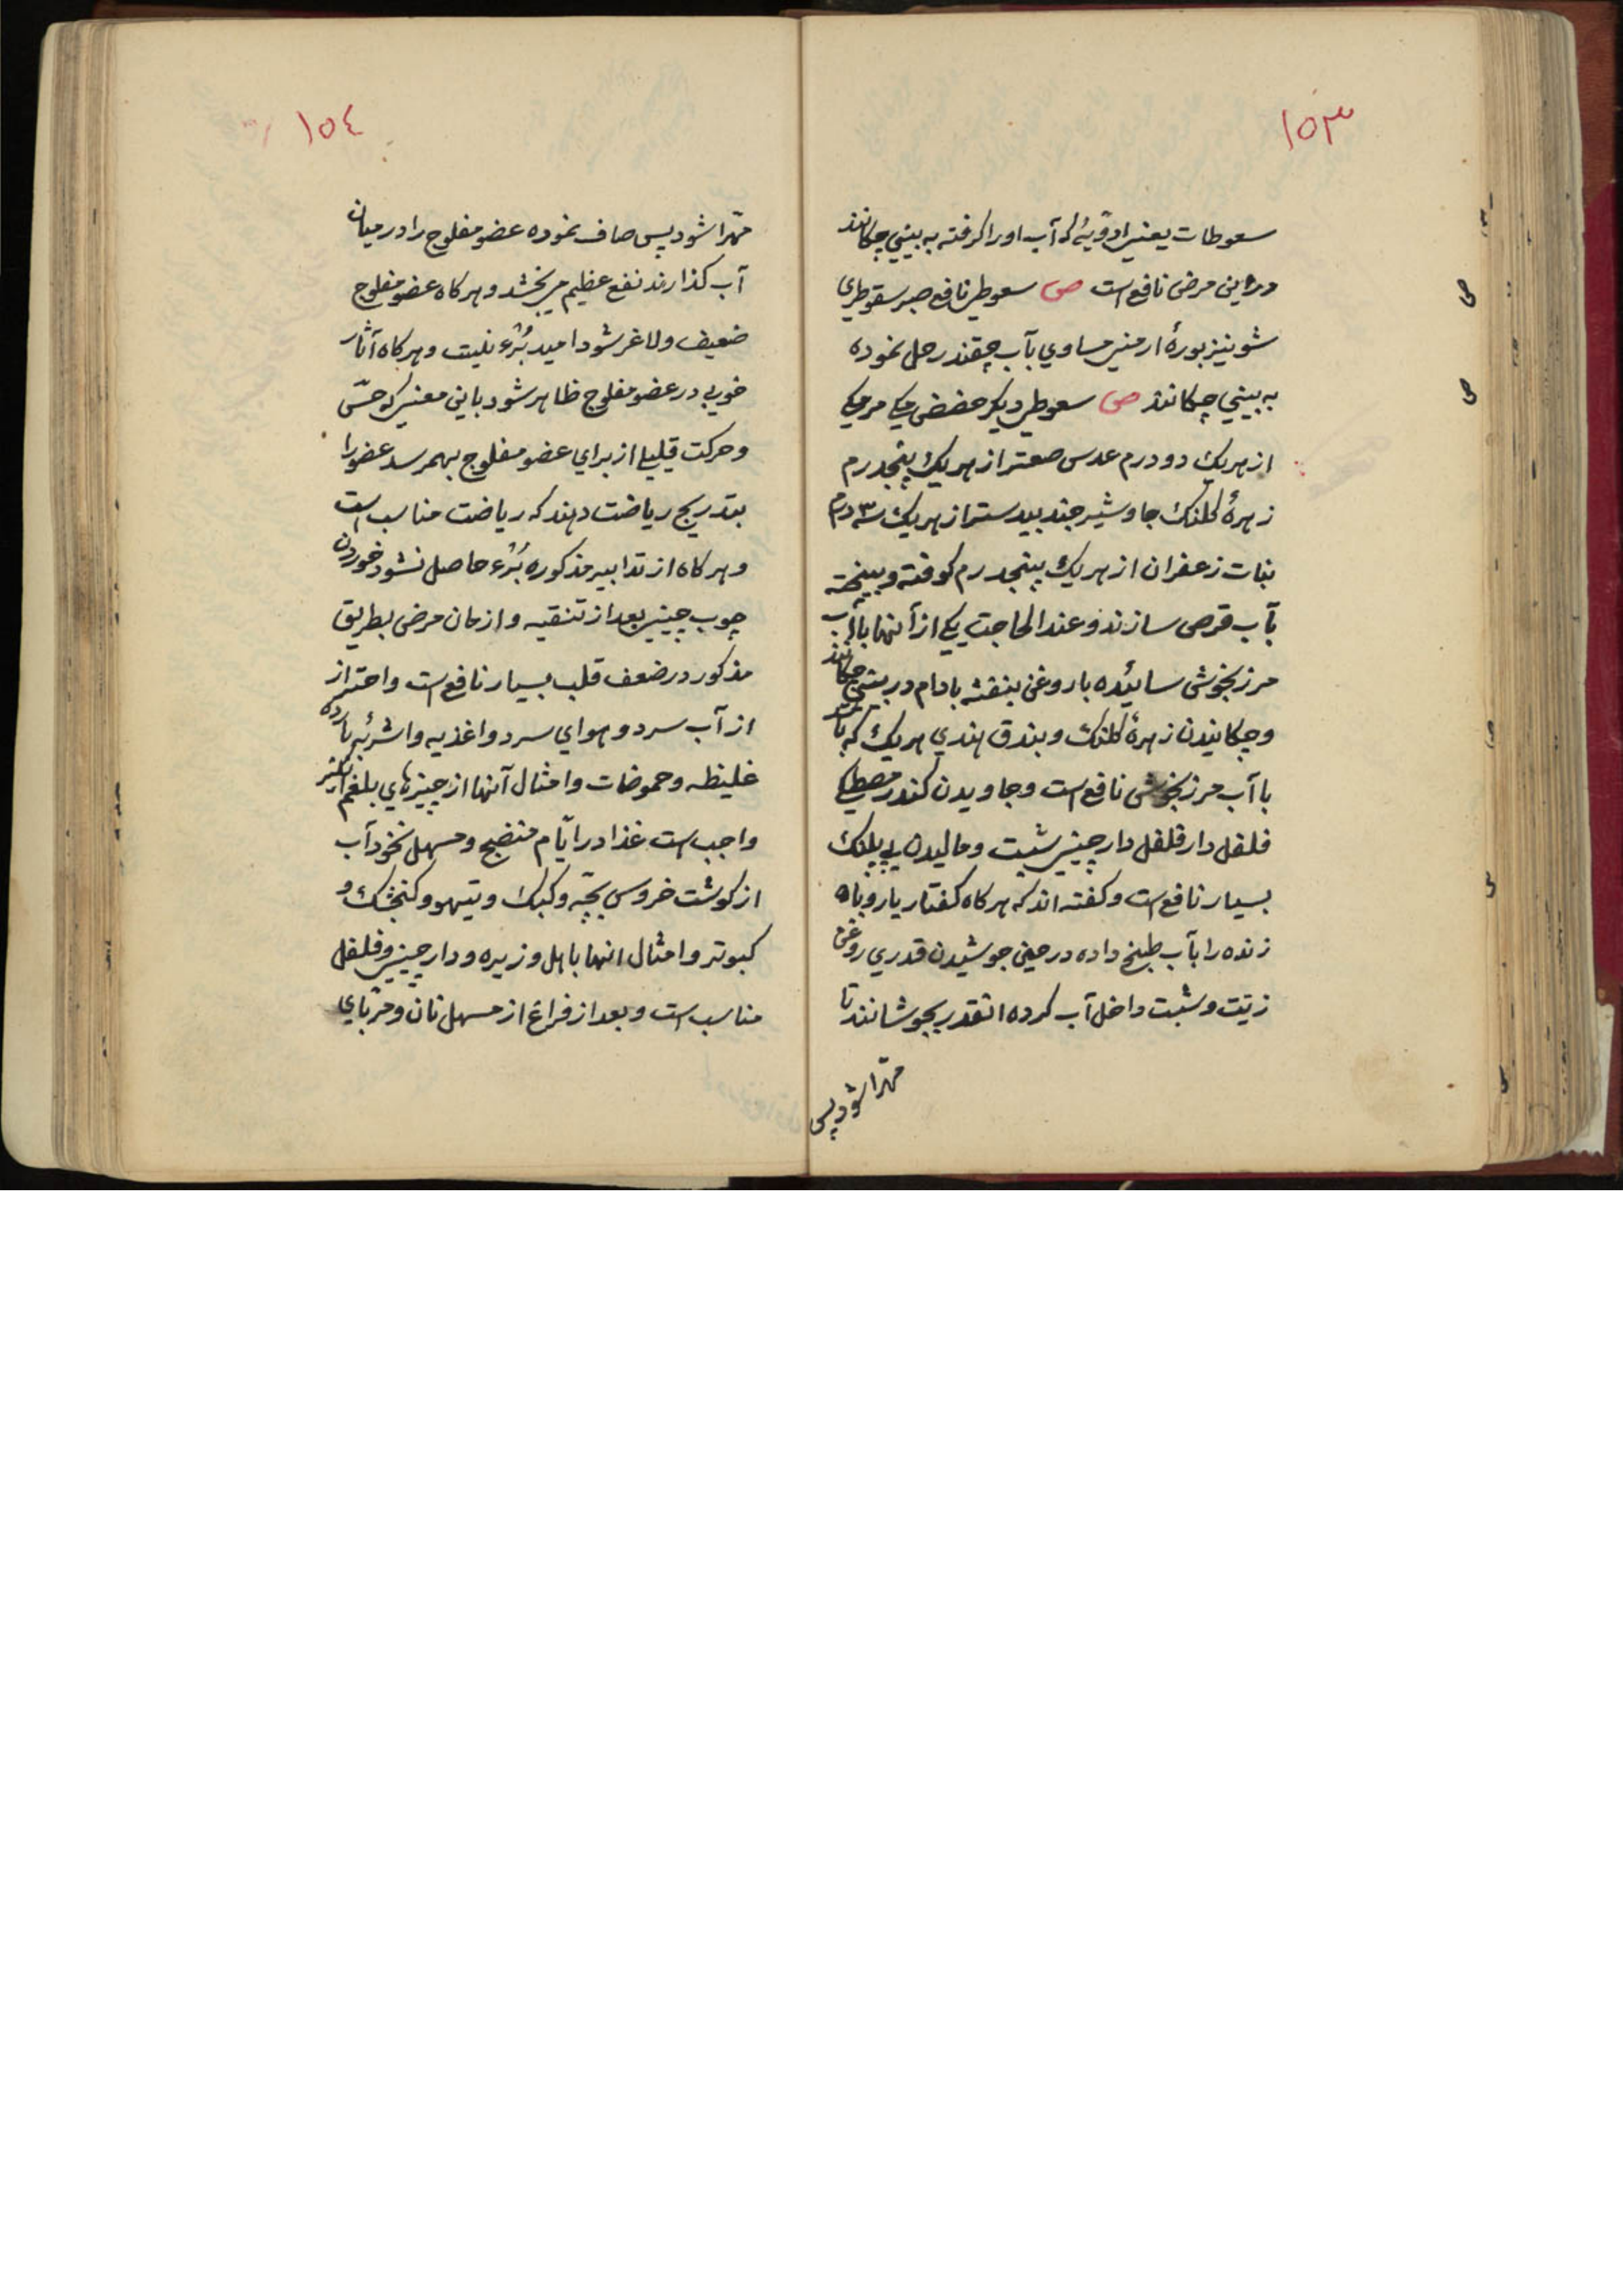 ١٥٣
سعوطات یعنی ادویۀ که آب او را کرفته به بینی چکانند
در این مرض نافع است ص سعوطی نافع صبر سقوطری
شونیز بورۀ ارمنی مساوي بآب چقندر حل نموده
به بیني چکانند ص سعوطی دیکر حضض مکی مرمکی
از هریك دو درم عدس صعتر از هریك پنجدرم
زهرۀ کلنك جاوشیر جندبیدستر از هریك سه ٣ درم
نبات زعفران از هریك پنجدرم کوفته و بیخته
بآب قرص سازند و عند الحاجت یکی از آنها با آب
مرزنجوش سائیده با روغن بنفشه بادام در بینی چکانند
و چکانیدن زهرۀ کلنك و بندق هندي هریك که باشد
با آب مرزنجوش نافع است و جاویدن کندر مصطکی
فلفل دارفلفل دارچینی شبت و مالیدن پیه پلنك
بسیار نافع است و کفته اند که هر کاه کفتار یا روباه
زنده را بآب طبخ داده در حین جوشیدن قدري روغن
زیت و شبت داخل آب کرده انقدر بجوشانند تا
مهرّا شود پس
١٥٤
مهرّا شود پس صاف نموده عضو مفلوج را در میان
آب کذارند نفع عظیم می بخشد و هر کاه عضو مفلوج
ضعیف و لاغر شود امید بُرء نیست و هر کاه آثار
خوبی در عضو مفلوج ظاهر شود باین معنی که حسّ
و حرکت قلیلی از براي عضو مفلوج بهمرسد عضو را
بتدریج ریاضت دهند که ریاضت مناسب است
و هر کاه از تدابیر مذکوره بُرء حاصل نشود خوردن
چوب چینی بعد از تنقیه و ازمان مرض بطریق
مذکور در ضعف قلب بسیار نافع است و احتراز
از آب سرد و هواي سرد و اغذیه و اشربۀ بارده
غلیظه و حموضات و امثال آنها از چیزهاي بلغم انکیز
واجب است غذا در ایّام منضج و مسهل نخود آب
از کوشت خروس بچّه و کبك و تیهو و کنجشك و
کبوتر و امثال انها با هل و زیره و دارچینی و فلفل
مناسب است و بعد از فراغ از مسهل نان و مربّاي